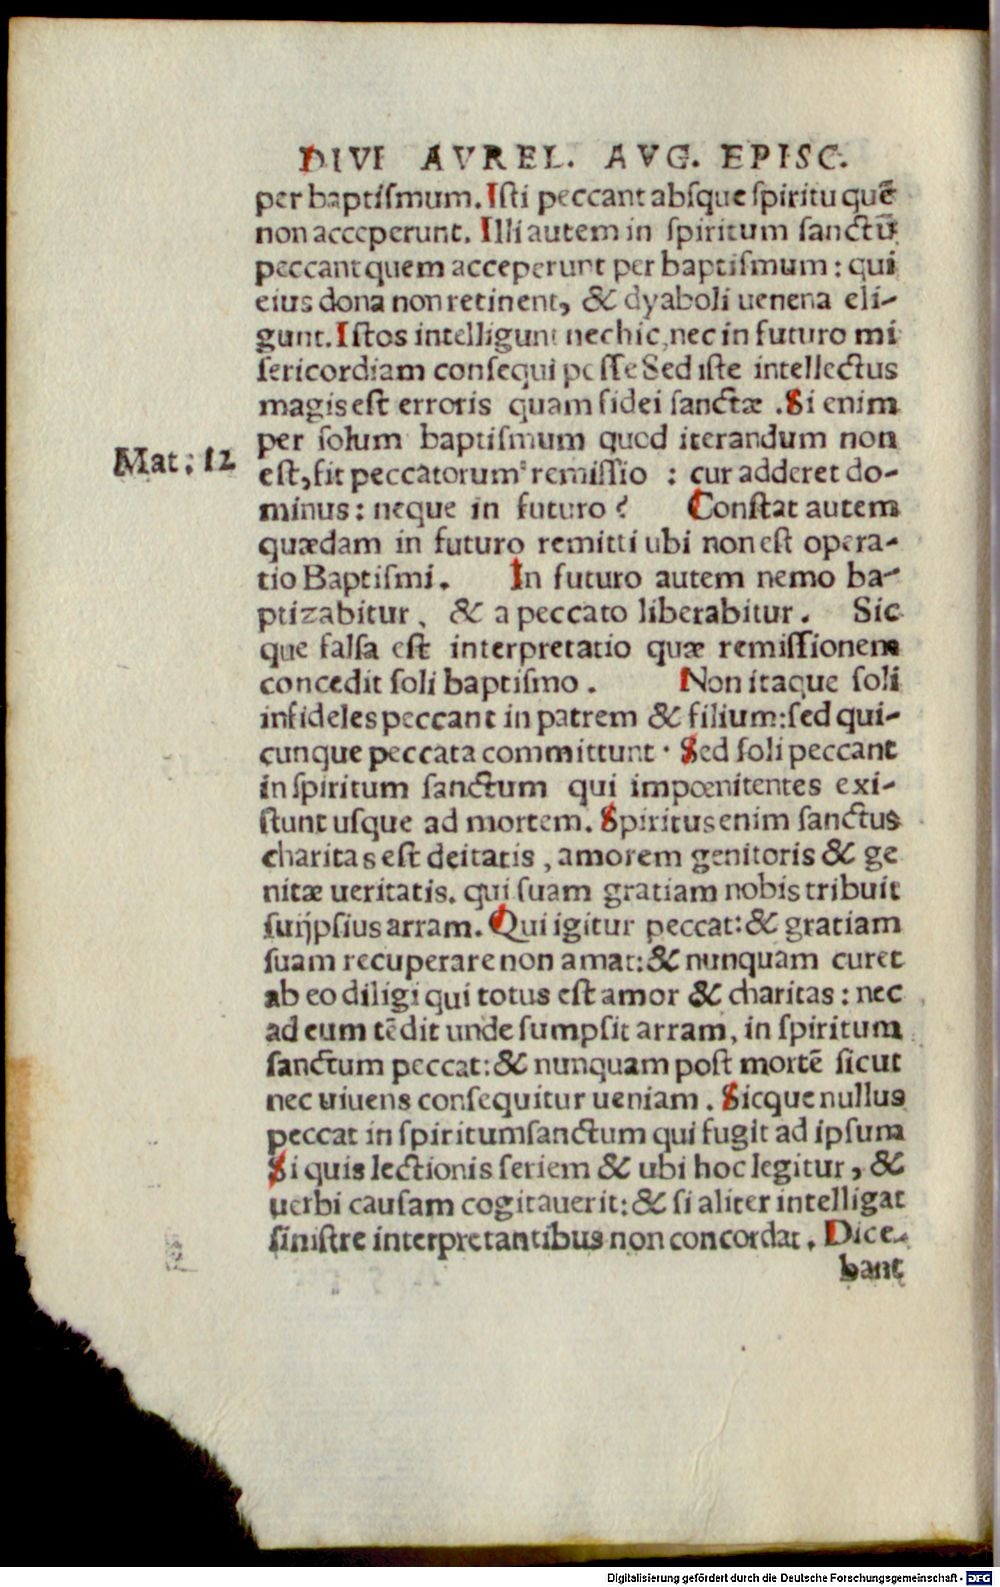 DIVI AVREL. AVG. EPISC.
per baptiſmum. Iſti peccant abſque ſpiritu quē
non acceperunt. Illi autem in ſpiritum ſanctū
peccant quem acceperunt per baptiſmum: qui
eius dona non retinent, & dyaboli uenena eli-
gunt. Iſtos intelligunt nec hic, nec in futuro mi
ſericordiam conſequi poſſe Sed iſte intellectus
magis eſt erroris quam fidei ſanctæ. Si enim
per ſolum baptiſmum quod iterandum non
Mat: 12
eſt, fit peccatorum remiſſio : cur adderet do-
minus: neque in futuro? Conſtat autem
quædam in futuro remitti ubi non eſt opera-
tio Baptiſmi. In futuro autem nemo ba-
ptizabitur, & a peccato liberabitur. Sic
que falſa eſt interpretatio quæ remiſſionem
concedit ſoli baptiſmo. Non itaque ſoli
infideles peccant in patrem & filium: ſed qui-
cunque peccata committunt. Sed ſoli peccant
in ſpiritum ſanctum qui impœnitentes exi-
ſtunt uſque ad mortem. Spiritus enim ſanctus
charitas eſt deitatis, amorem genitoris & ge
nitæ ueritatis. qui ſuam gratiam nobis tribuit
ſuijpſius arram. Qui igitur peccat: & gratiam
ſuam recuperare non amat: & nunquam curet
ab eo diligi qui totus eſt amor & charitas: nec
ad eum tēdit unde ſumpſit arram, in ſpiritum
ſanctum peccat: & nunquam poſt mortē ſicut
nec uiuens conſequitur ueniam. Sicque nullus
peccat in ſpiritumſanctum qui fugit ad ipſum
Si quis lectionis ſeriem & ubi hoc legitur, &
uerbi cauſam cogitauerit: & ſi aliter intelligat
ſiniſtre interpretantibus non concordat. Dice-
bant
Digitalisierung gefördert durch die Deutsche Forschungsgemeinschaft - DFG